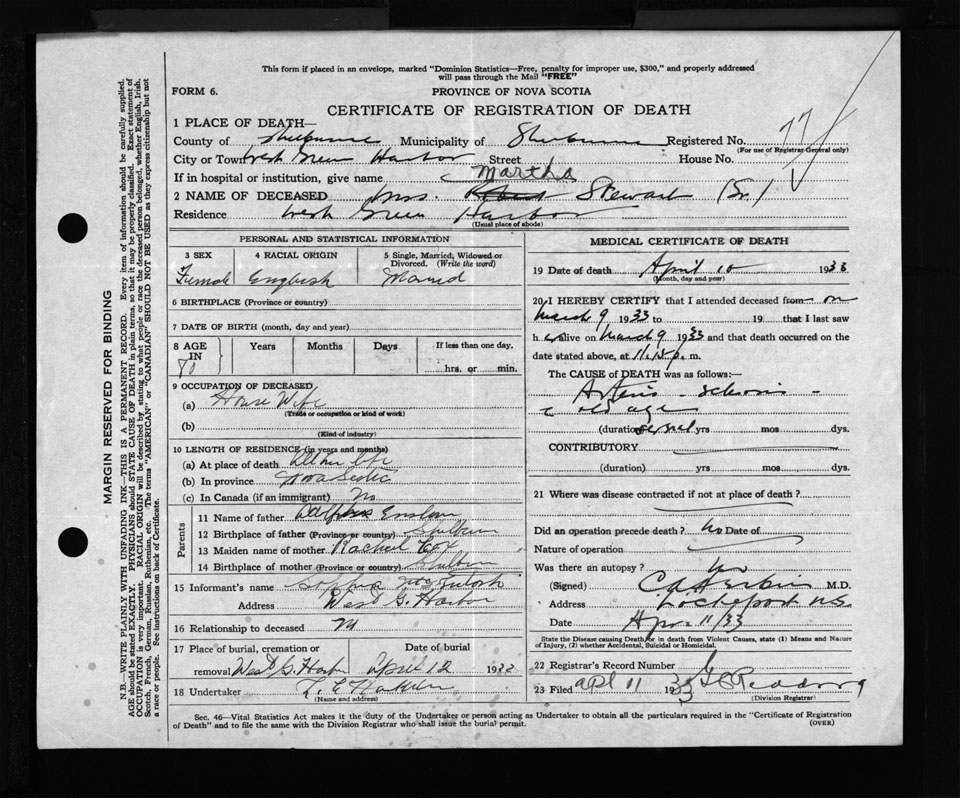 This form if placed in an envelope, marked "Dominion Statistics—Free, penalty for improper use, $300," and properly addressed
will pass through the Mail "FREE"
FORM 6. PROVINCE OF NOVA SCOTIA
CERTIFICATE OF REGISTRATION OF DEATH
1 PLACE OF DEATH—
County of Shelburne Municipality of Shelburne Registered No. 77
(For use of Registrar General only)
City or Town West Green Harbor Street House No.
If in hospital or institution, give name
Martha
2 NAME OF DECEASED Mrs. Stewart (Sr.)
Residence West Green Harbor
(Usual place of abode)
PERSONAL AND STATISTICAL INFORMATION
3 SEX 4 RACIAL ORIGIN 5 Single, Married, Widowed or
Divorced. (Write the word)
Female English Married
6 BIRTHPLACE (Province or country)
7 DATE OF BIRTH (month, day and year)
8 AGE IN Years Months Days If less than one day,
80 hrs. or min.
9 OCCUPATION OF DECEASED
(a) House Wife
(Trade or occupation or kind of work)
(b)
(Kind of industry)
10 LENGTH OF RESIDENCE (in years and months)
(a) At place of death All her life
(b) In province Nova Scotia
(c) In Canada (if an immigrant) No
Parents
11 Name of father
12 Birthplace of father (Province or country) Shelburn
13 Maiden name of mother Rachel Cox
14 Birthplace of mother (Province or country) Shelburn
15 Informant's name Sophia McIntosh
Address West G. Harbor
16 Relationship to deceased
17 Place of burial, cremation or Date of burial
removal West G. Harbor April 12 1933
18 Undertaker
(Name and address)
MEDICAL CERTIFICATE OF DEATH
19 Date of death April 10 1933
(Month, day and year)
20 I HEREBY CERTIFY that I attended deceased from on
March 9 1933 to 19 that I last saw
h er alive on March 9 1933 and that death occurred on the
date stated above, at p.m.
The CAUSE of DEATH was as follows:—
Arterio-sclerosis -
old age
(duration) several yrs mos dys.
CONTRIBUTORY
(duration) yrs mos dys.
21 Where was disease contracted if not at place of death?
Did an operation precede death? No Date of
Nature of operation
Was there an autopsy? No
(Signed) M.D.
Address Lockeport N.S.
Date Apr 11/33
State the Disease causing Death or in death from Violent Causes, state (1) Means and Nature
of Injury, (2) whether Accidental, Suicidal or Homicidal.
22 Registrar's Record Number
23 Filed apl 11 1933
(Division Registrar)
Sec. 46—Vital Statistics Act makes it the duty of the Undertaker or person acting as Undertaker to obtain all the particulars required in the "Certificate of Registration
of Death" and to file the same with the Division Registrar who shall issue the burial permit. (OVER)
MARGIN RESERVED FOR BINDING
N.B.—WRITE PLAINLY WITH UNFADING INK—THIS IS A PERMANENT RECORD. Every item of information should be carefully supplied.
AGE should be stated EXACTLY. PHYSICIANS should STATE CAUSE OF DEATH in plain terms, so that it may be properly classified. Exact statement of
OCCUPATION is very important. RACIAL ORIGIN will be described by stating to what people or race the deceased person belonged, whether English, Irish,
Scotch, French, German, Russian, Ruthenian, etc. The terms "AMERICAN" or "CANADIAN" SHOULD NOT BE USED as they express citizenship but not
a race or people. See instructions on back of Certificate.